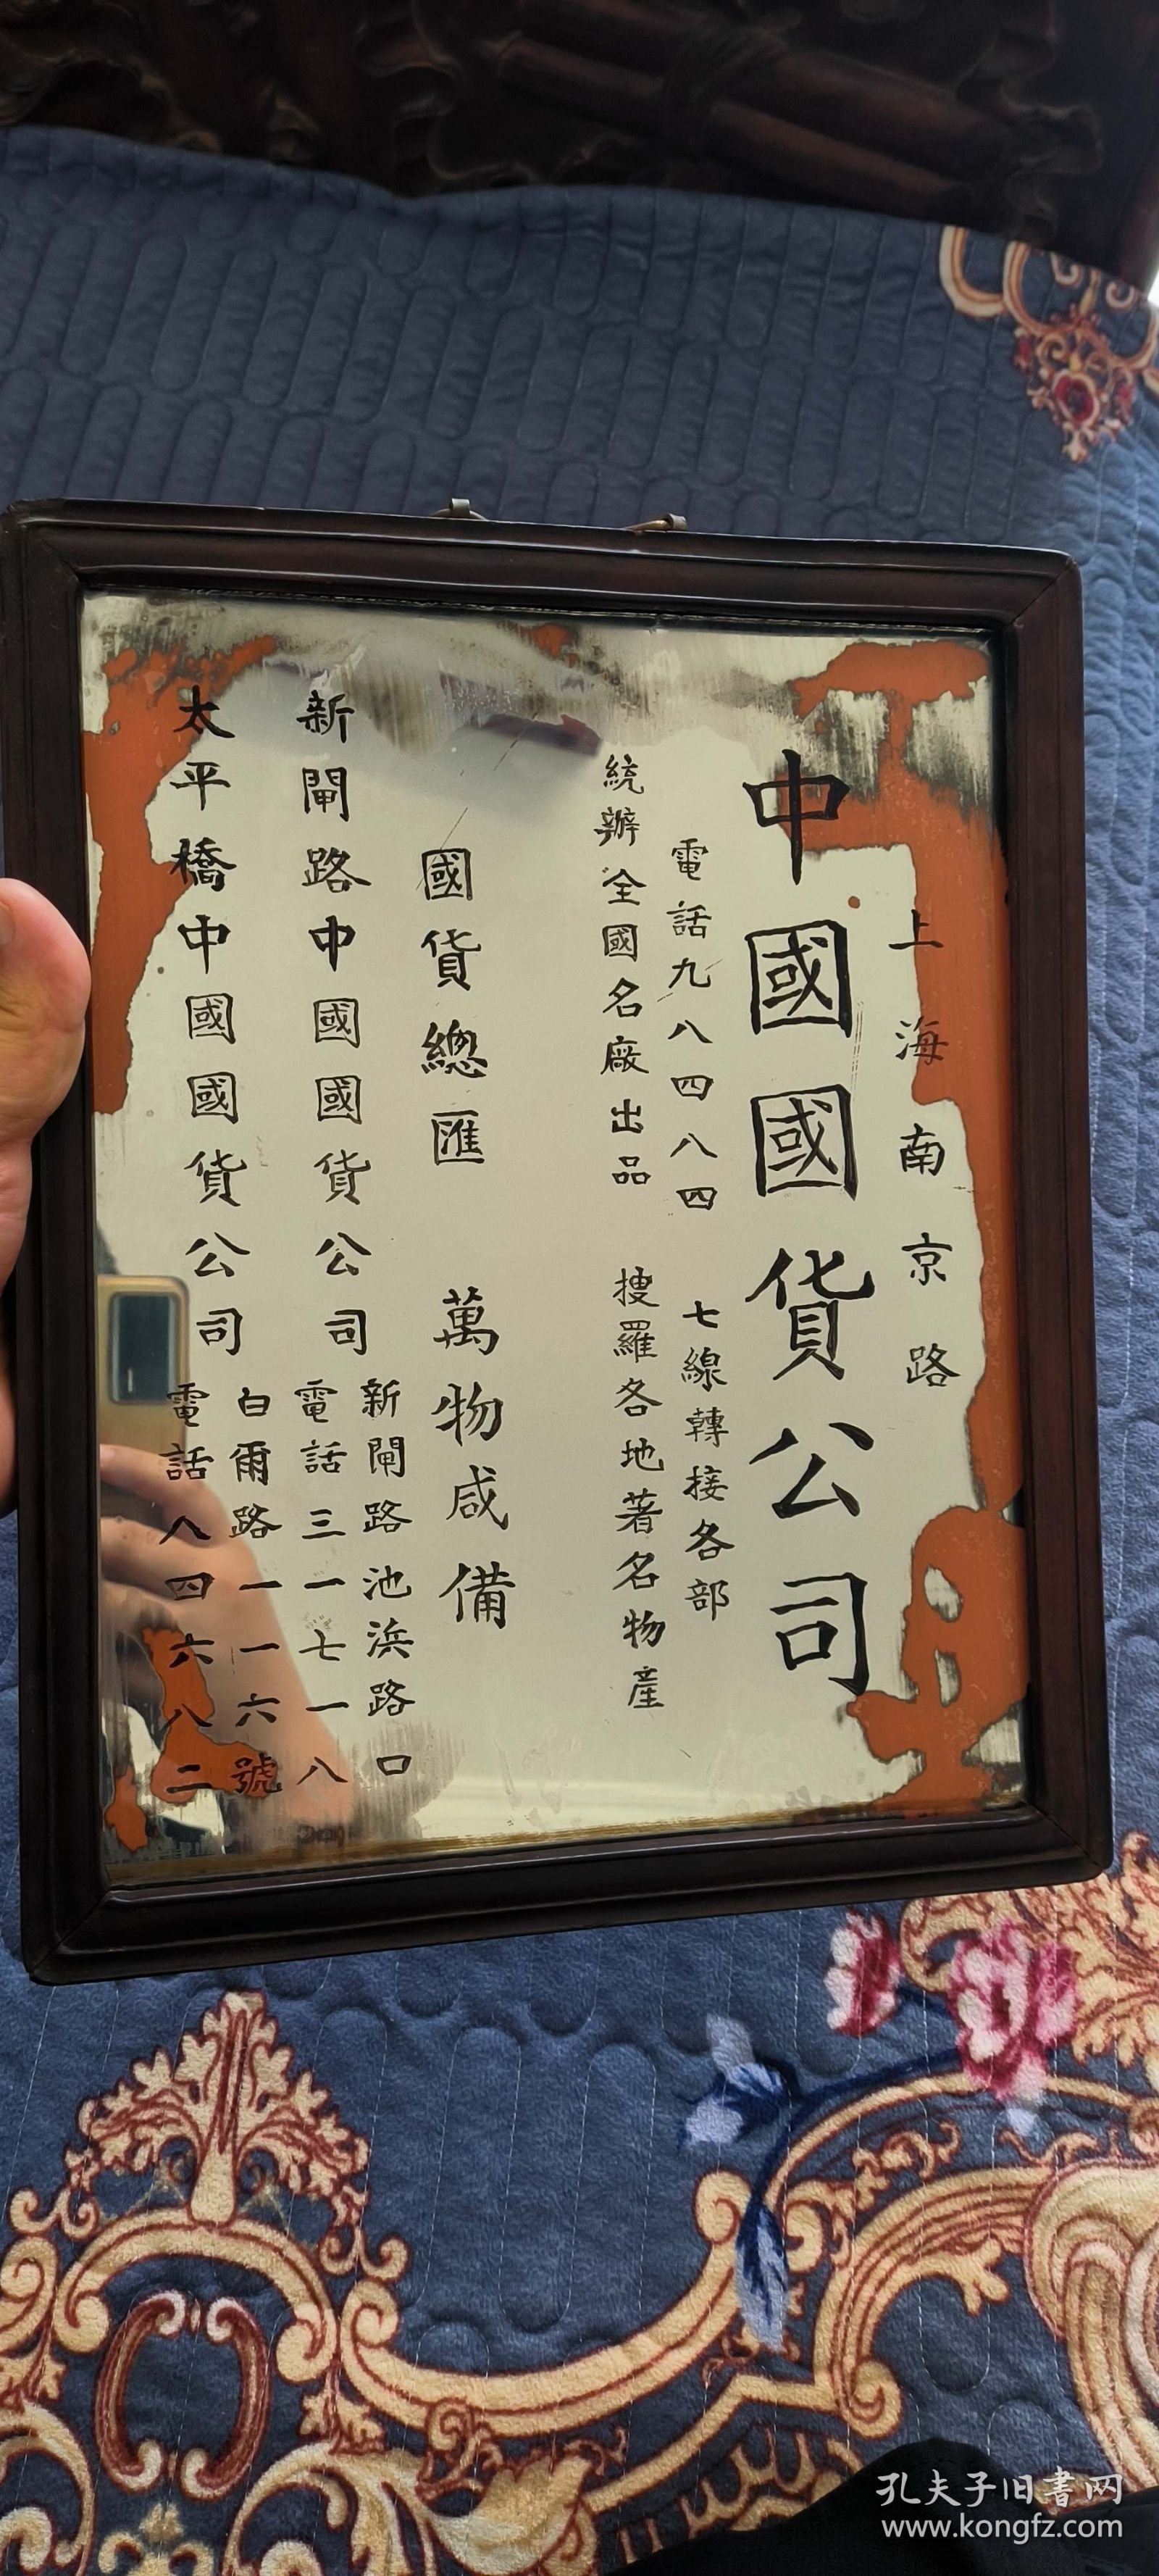 上海南京路
中國國貨公司
電話九八四八四 七線轉接各部
統辦全國名廠出品 搜羅各地著名物產
國貨總匯 萬物咸備
新閘路中國國貨公司
新閘路池浜路口
電話三一七一八
太平橋中國國貨公司
白爾路一一六號
電話八四六八二
孔夫子旧書网
www.kongfz.com